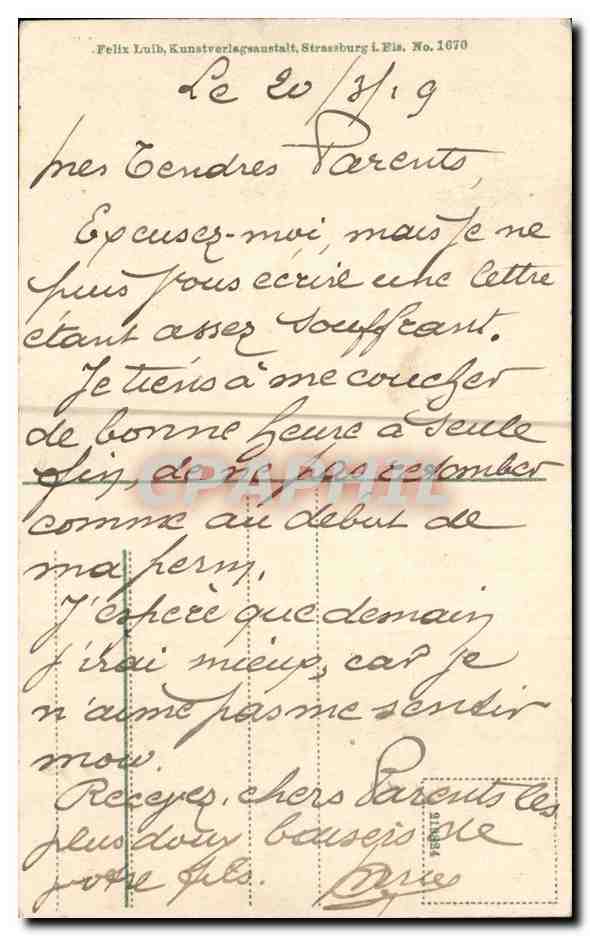 Felix Luib, Kunstverlagsanstalt, Strassburg i. Els. No. 1670
Le 20/3/19
Mes Tendres Parents,
Excusez-moi, mais je ne
puis vous écrire une lettre
étant assez souffrant.
Je tiens à me coucher
de bonne heure à seule
fin, de ne pas retomber
CPAPHIL
comme au début de
ma perm.
J'espère que demain
j'irai mieux, car je
n'aime pas me sentir
mou.
Recevez, chers Parents les
plus doux baisers de
votre fils.